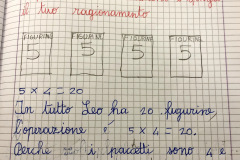 il tuo ragionamento
FIGURINE FIGURINE FIGURINE FIGURINE
5 5 5 5
5 x 4 = 20
In tutto Leo ha 20 figurine,
l'operazione è 5 x 4 = 20.
Perché i pacchetti sono 4 e